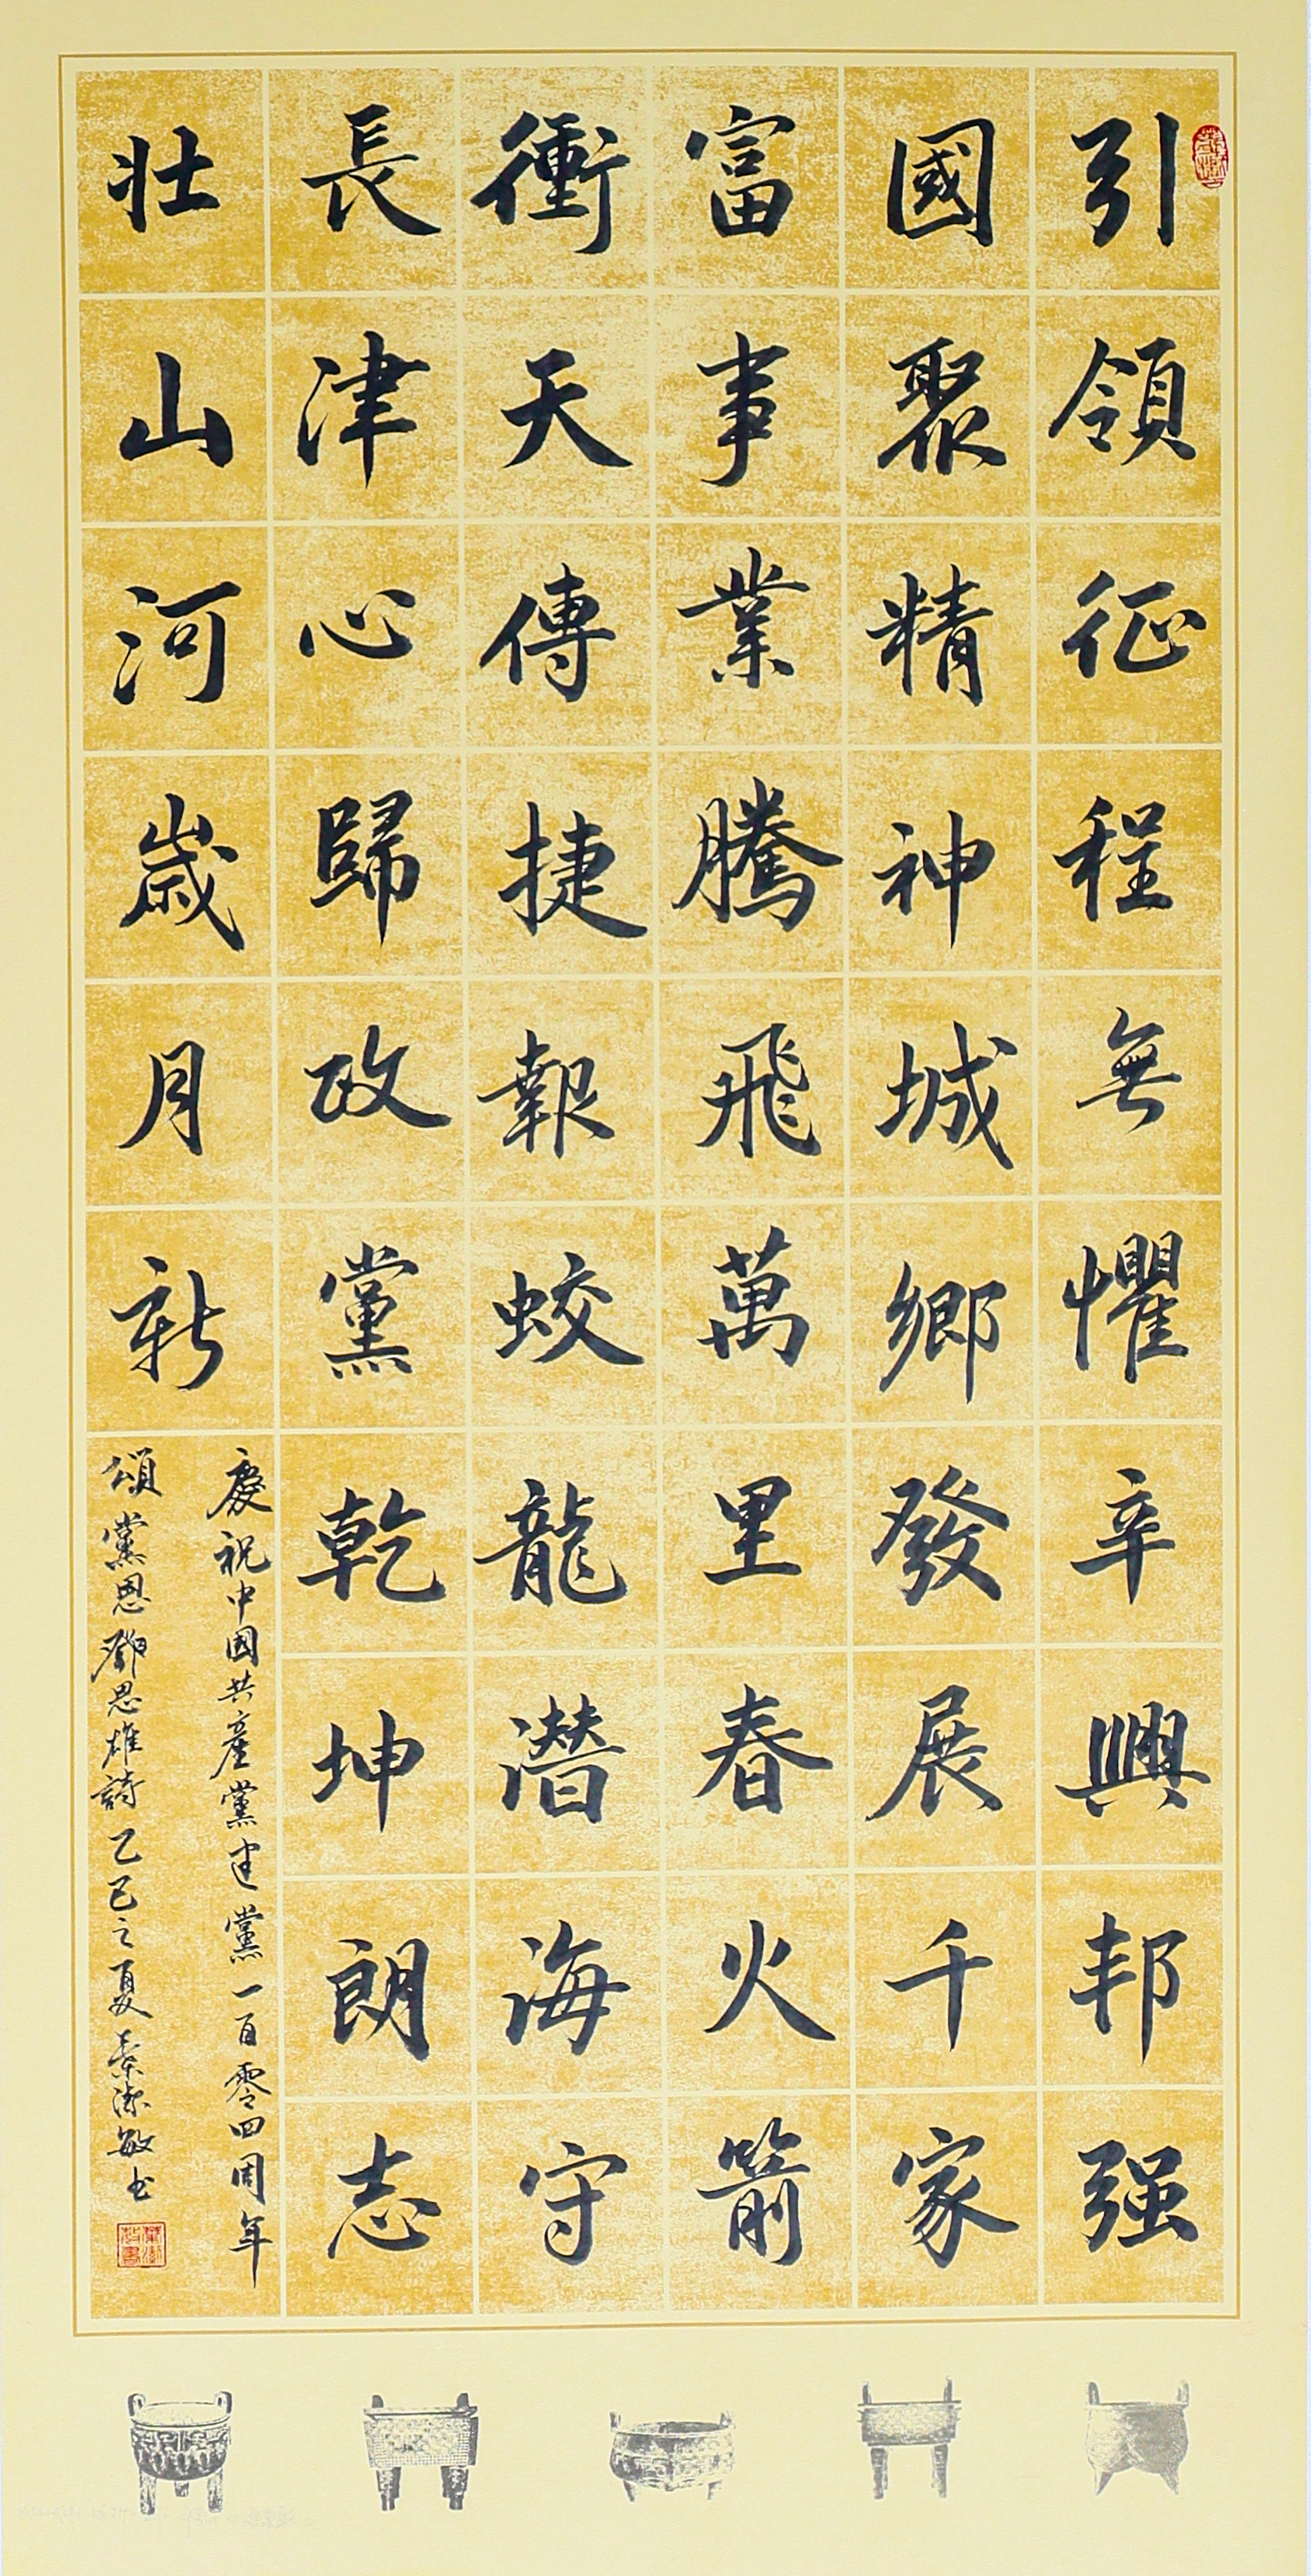 引領征程無懼辛興邦强
國聚精神城鄉發展千家
富事業騰飛萬里春火箭
衝天傳捷報蛟龍潛海守
長津心歸政黨乾坤朗志
壯山河歲月新
慶祝中国共産黨建黨一百零四周年
頌黨恩鄧思雄詩乙巳之夏潔敏书